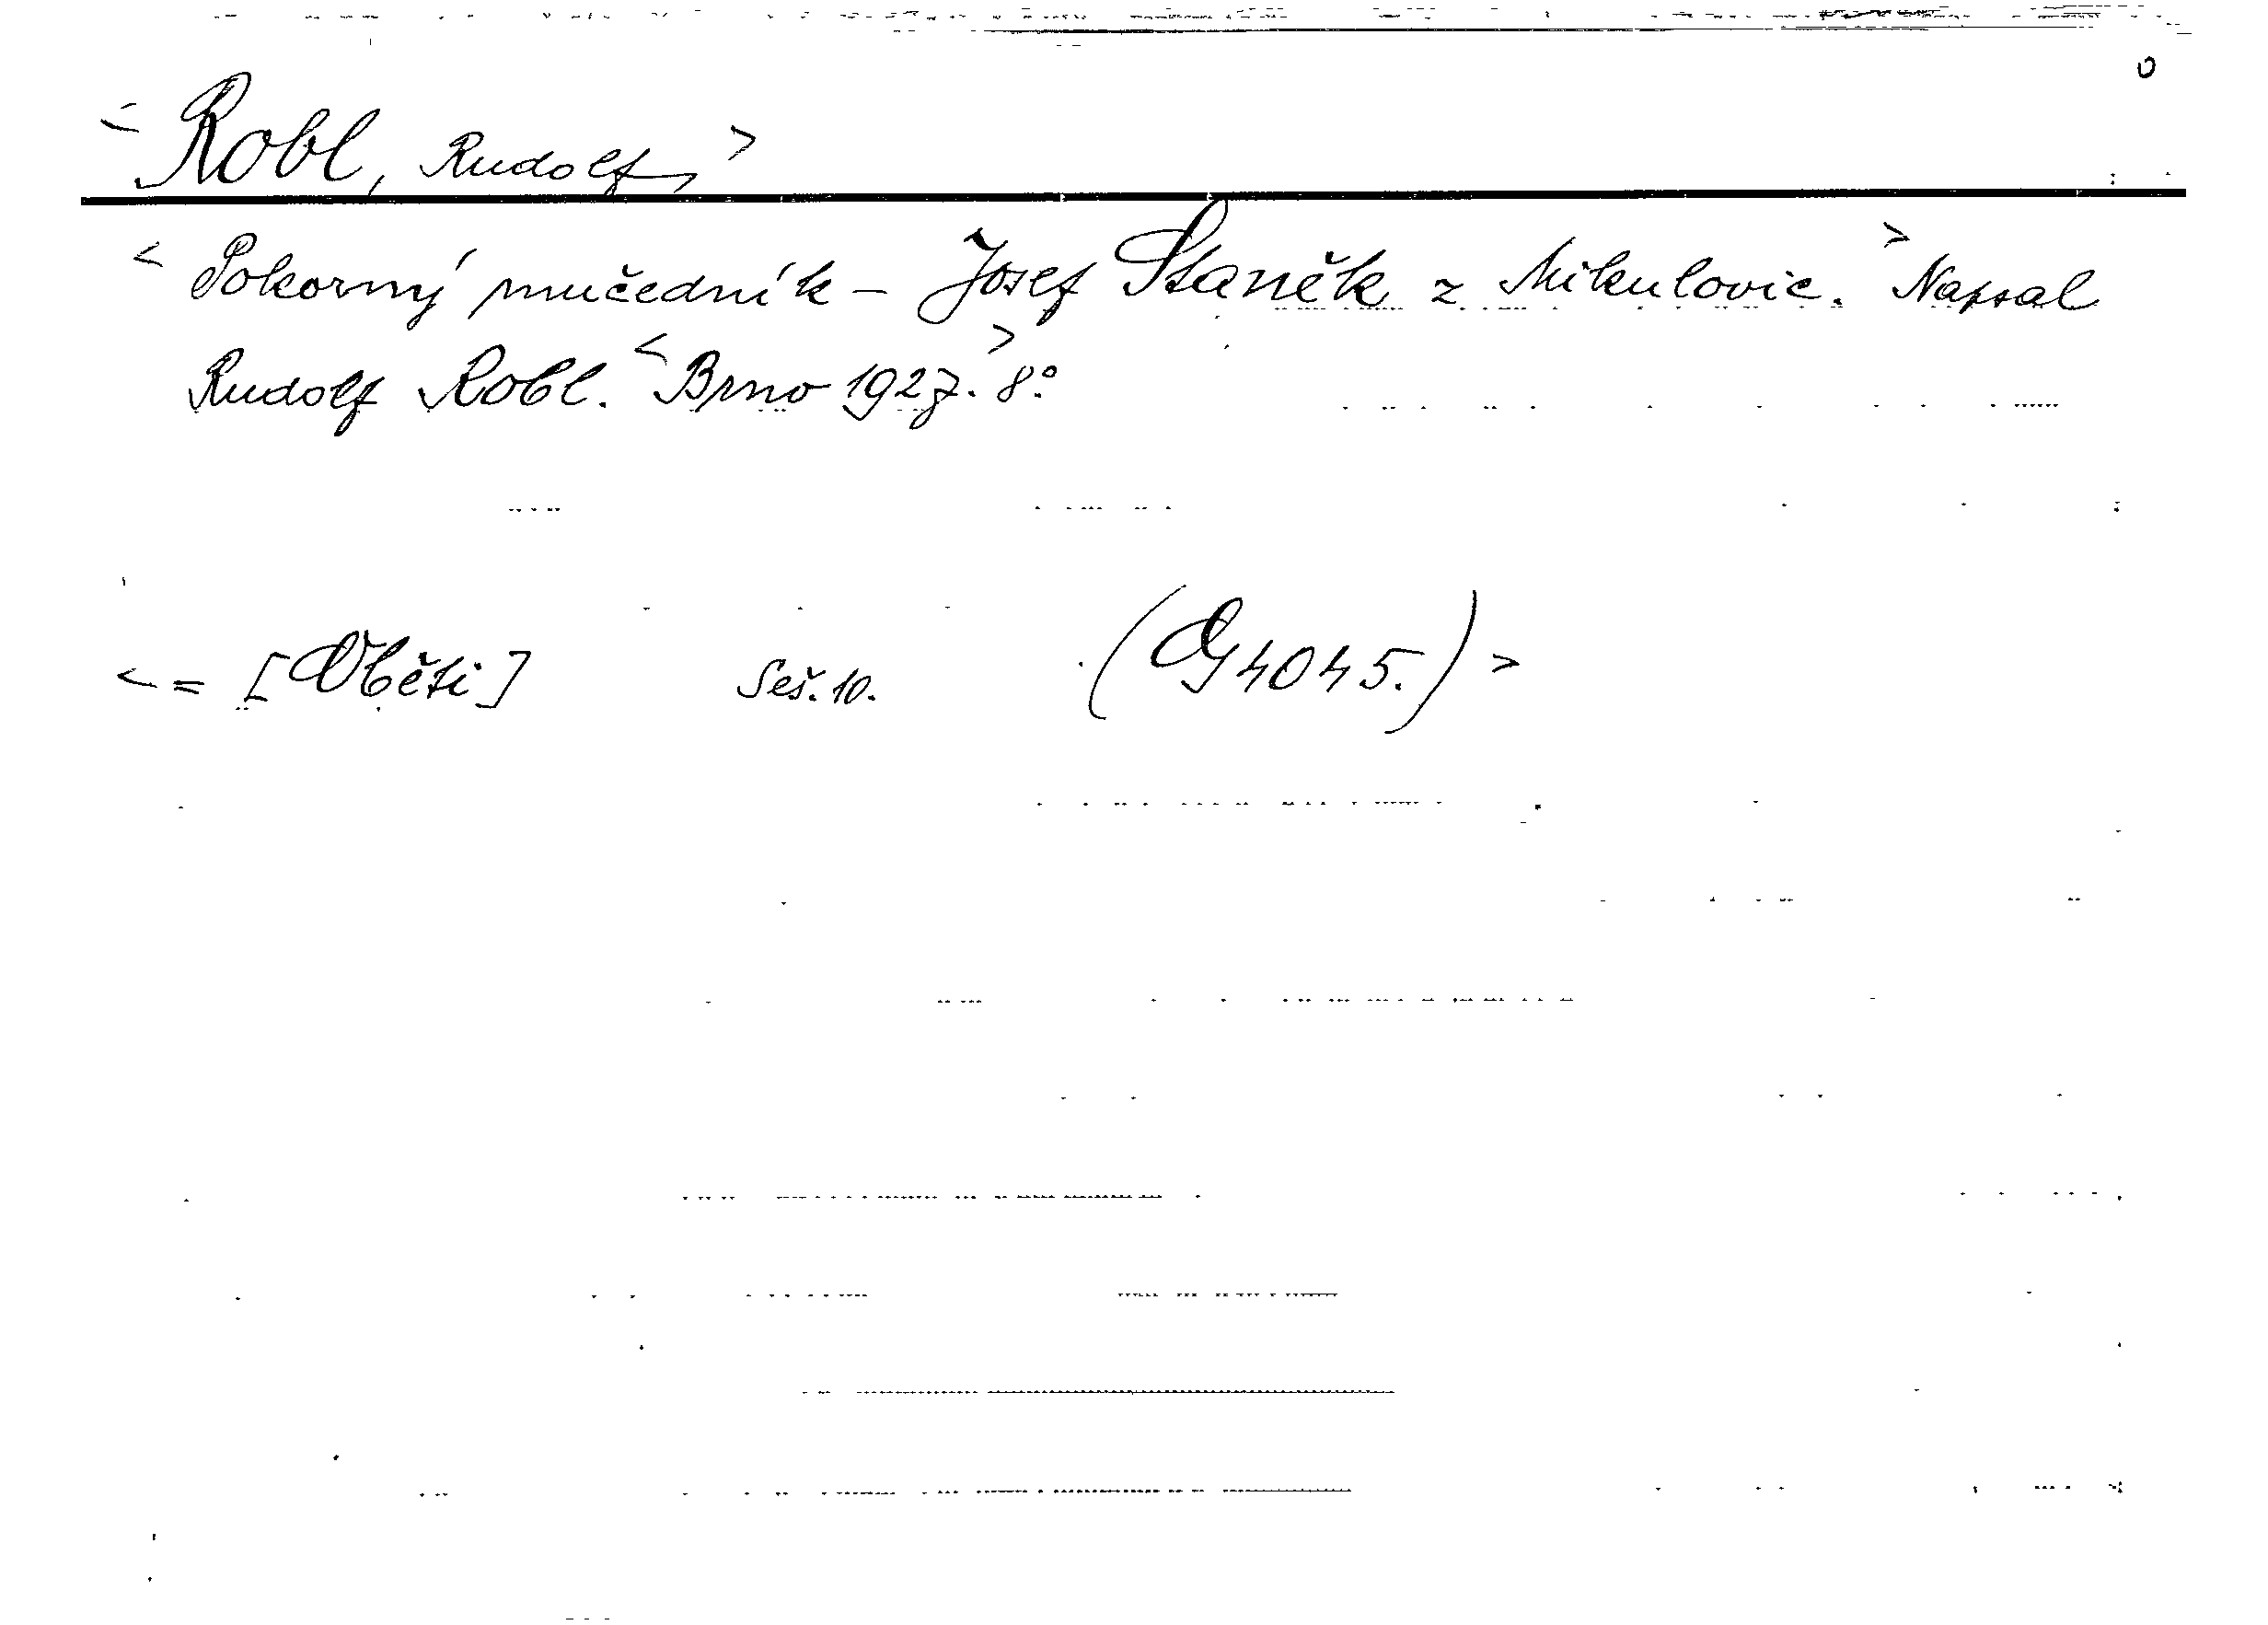 < Robl, Rudolf, >
< Pokorný mučedník – Josef Staněk z Mikulovic. > Napsal
Rudolf Robl. < Brno 1927. > 8°.
< = [Oběti] Seš. 10. (G 4045.) >